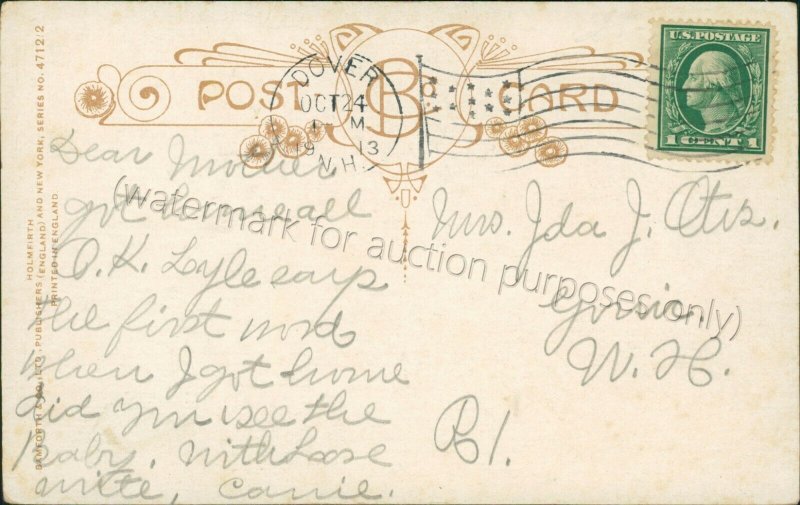 POST CARD
DOVER
OCT 24
1 M
19 13
N.H.
U.S. POSTAGE
1 CENT 1
HOLMFIRTH
BAMFORTH & CO. LTD. PUBLISHERS (ENGLAND) AND NEW YORK, SERIES NO. 4712/2
PRINTED IN ENGLAND.
Dear Mother
got home all
O.K. Lyle says
the first word
when I got home
did you see the
Baby. with love
write, Carrie.
Mrs. Ida J. Otis.
Gonic.
N. H.
R 1.
(watermark for auction purposes only)